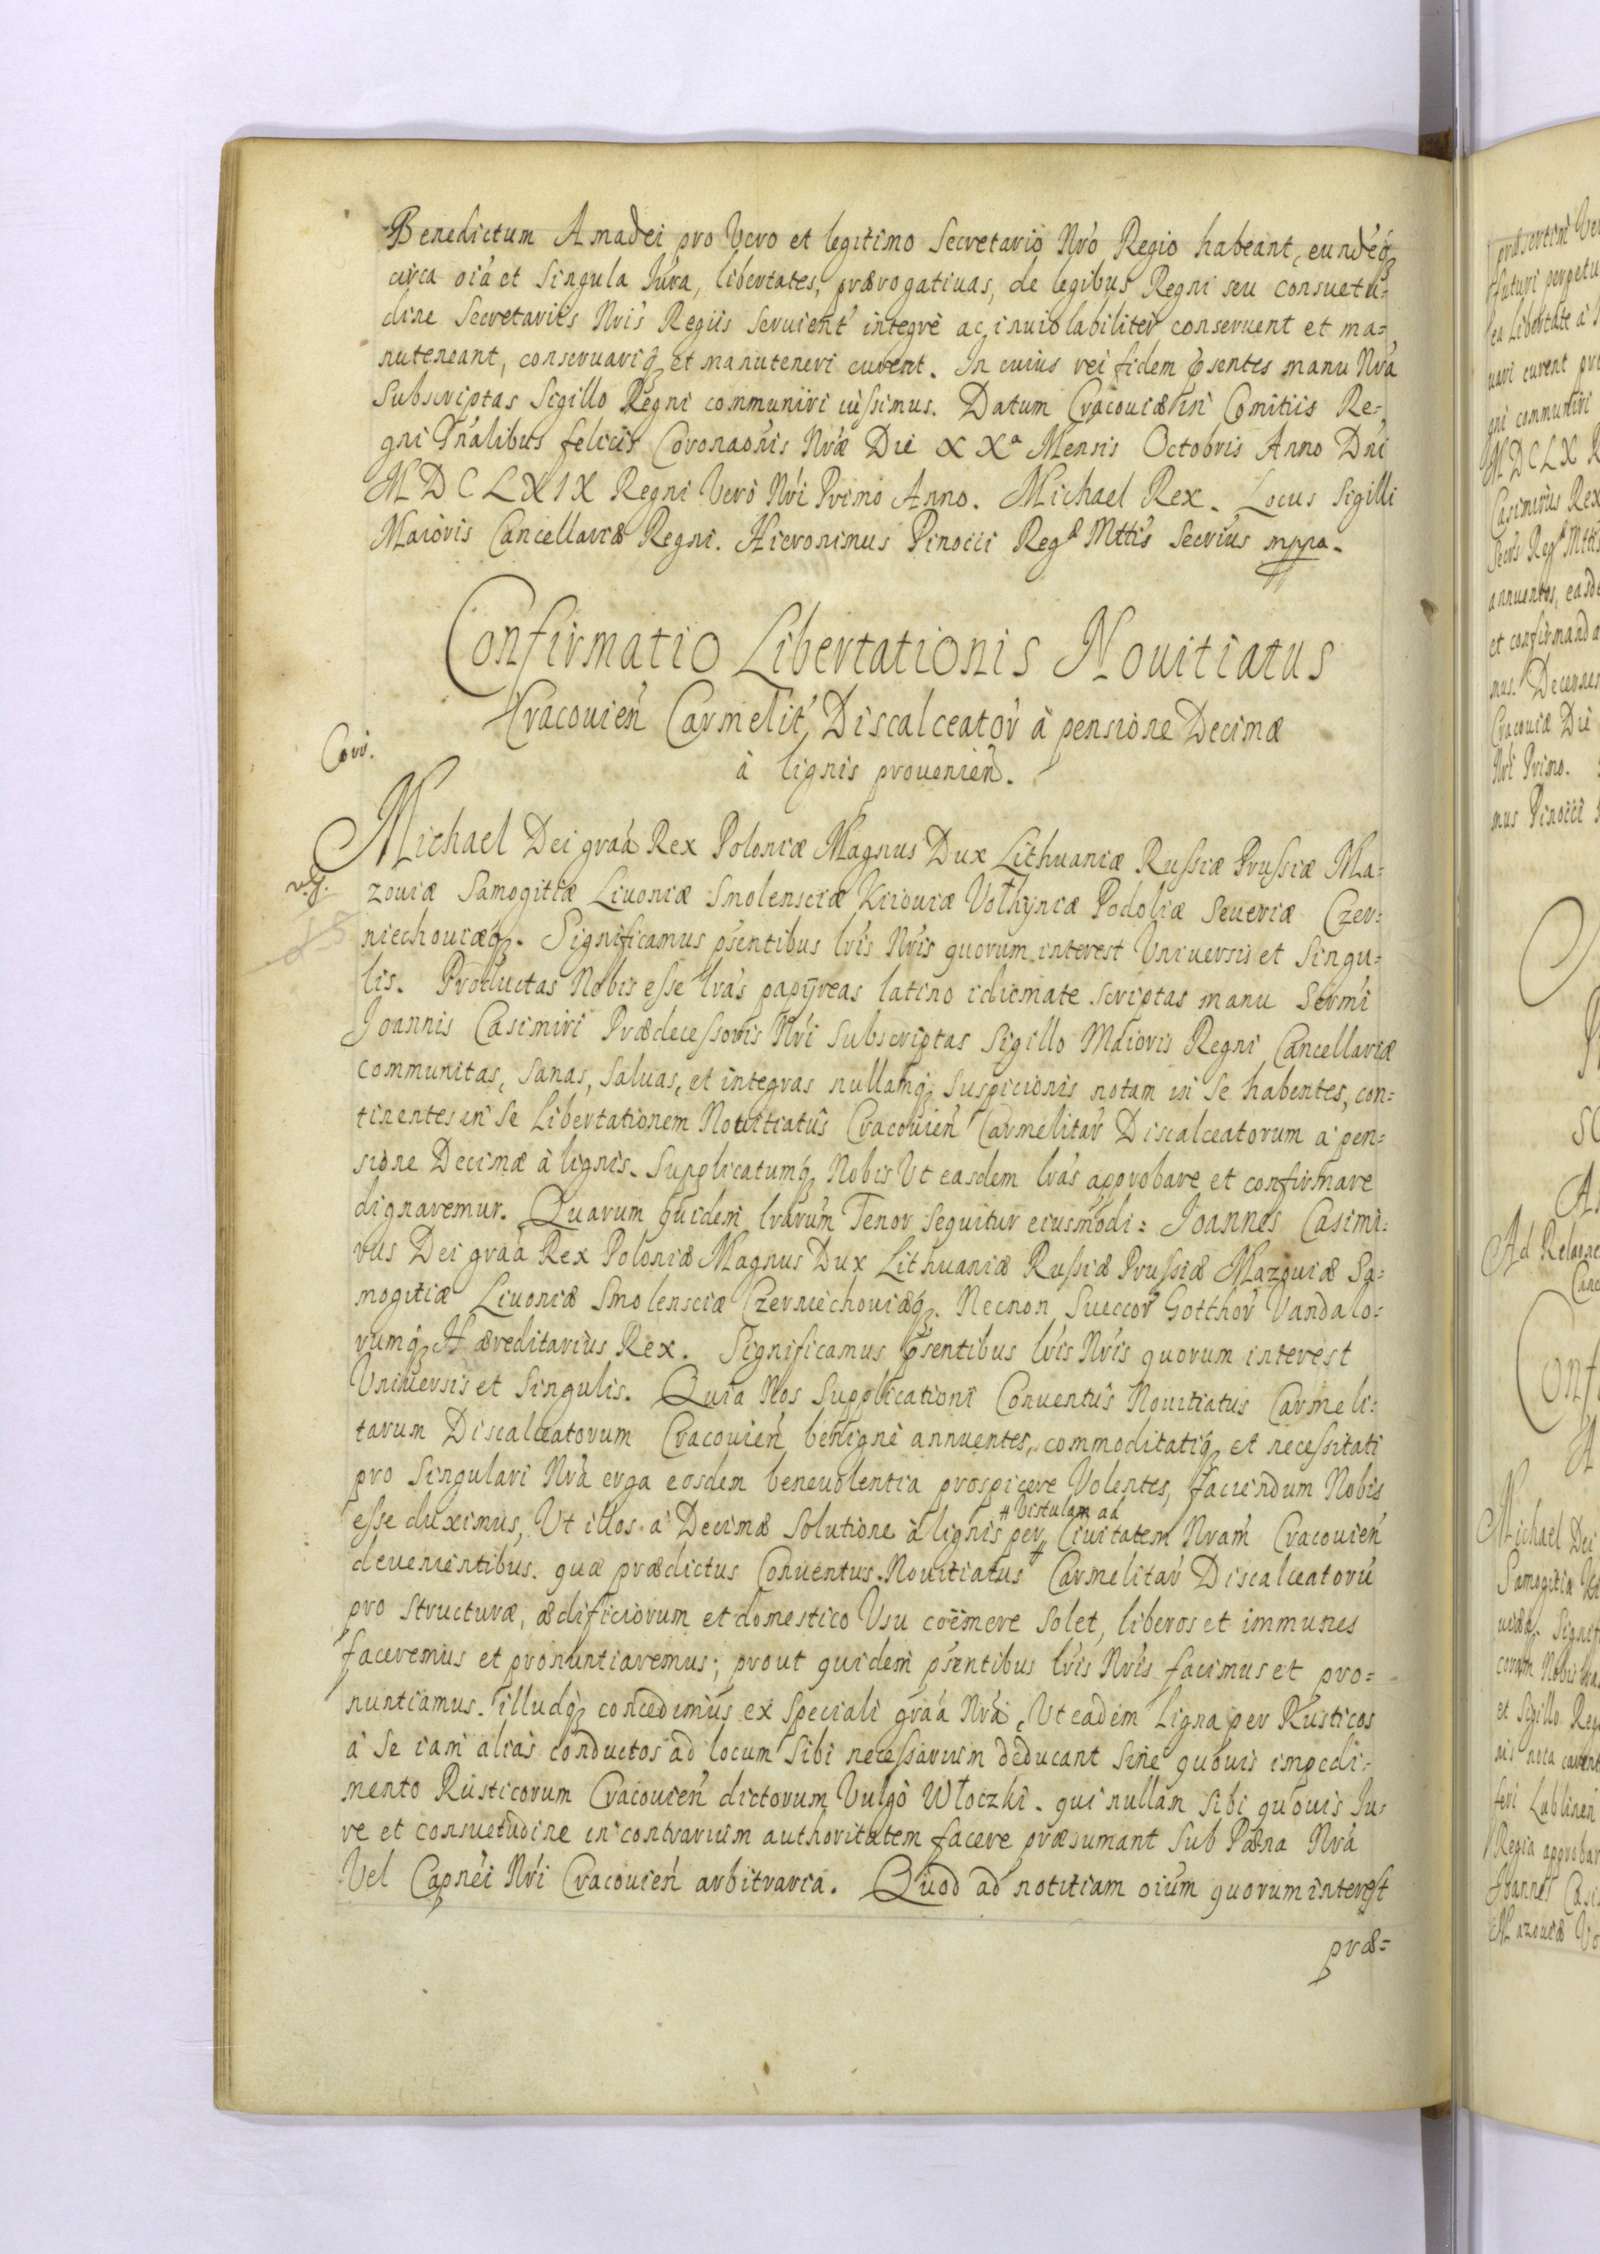 Benedictum Amadei pro Vero et legitimo Secretario Nro Regio habeant, eundeq
circa oia et Singula Iura, libertates, prærogatiuas, de legibus Regni seu consuetu=
dine Secretariis Nris Regiis seruient integrè ac inuiolabiliter conseruent et ma=
nuteneant, conseruariq et manuteneri curent. In cuius rei fidem psentes manu Nra
Subscriptas Sigillo Regni communiri iussimus. Datum Cracouiæ in Comitiis Re=
gni Gnalibus felicis Coronaonis Nræ Die XXa Mensis Octobris Anno Dni
MDCLXIX Regni Verò Nri Primo Anno. Michael Rex. Locus Sigilli
Maioris Cancellariæ Regni. Hieronimus Pinocii Regæ Mttis Secrius mppa.
Confirmatio Libertationis Nouitiatus
Cracouień Carmelit, Discalceator à pensione Decimæ
à lignis prouenień.
Cori.
Michael Dei graa Rex Poloniæ Magnus Dux Lithuaniæ Russiæ Prussiæ Ma=
zouiæ Samogitiæ Liuoniæ Smolensciæ Kiiouiæ Volhyniæ Podoliæ Seueriæ Czer=
niechouiæq. Significamus psentibus lris Nris quorum interest Vniuersis et Singu=
lis. Productas Nobis esse lras papÿreas latino idiomate scriptas manu Sermi
Joannis Casimiri Prædecessoris Nri Subscriptas Sigillo Maioris Regni Cancellariæ
communitas, sanas, saluas, et integras nullamq Suspicionis notam in Se habentes, con=
tinentes in Se Libertationem Nouitiatus Cracouień Carmelitar Discalceatorum a pen=
sione Decimæ à lignis. Supplicatumq Nobis Vt easdem lras approbare et confirmare
dignaremur. Quarum quidem lrarum Tenor Sequitur eiusmodi: Joannes Casimi=
rus Dei graa Rex Poloniæ Magnus Dux Lithuaniæ Russiæ Prussiæ Mazouiæ Sa=
mogitiæ Liuoniæ Smolensciæ Czerniechouiæq. Necnon Sueccor Gotthor Vandalo=
rumq Hæreditarius Rex. Significamus psentibus lris Nris quorum interest
Vniuersis et Singulis. Quia Nos Supplicationi Conuentus Nouitiatus Carmeli=
tarum Discalceatorum Cracouień benigne annuentes, commoditatiq et necessitati
pro Singulari Nra erga eosdem beneuolentia prospicere Volentes, faciendum Nobis
# Vistulam ad
esse duximus, Vt illos à Decimæ Solutione à lignis per # Ciuitatem Nram Cracouień
deuenientibus. quæ prædictus Conuentus Nouitiatus Carmelitar Discalceatorū
pro structuræ, ædificiorum et domestico Vsu coëmere Solet, liberos et immunes
faceremus et pronuntiaremus; prout quidem psentibus lris Nris facimus et pro=
nuntiamus. illudq concedimus ex Speciali graa Nra, Vt eadem Ligna per Rusticos
à Se iam alias conductos ad locum Sibi necessarium deducant Sine quouis impedi=
mento Rusticorum Cracouień dictorum Vulgò Włoczki. qui nullam Sibi quouis Iu=
re et consuetudine in contrarium authoritatem facere præsumant Sub Pæna Nra
Vel Capnei Nri Cracouień arbitraria. Quod ad notitiam oium quorum interest
præ=